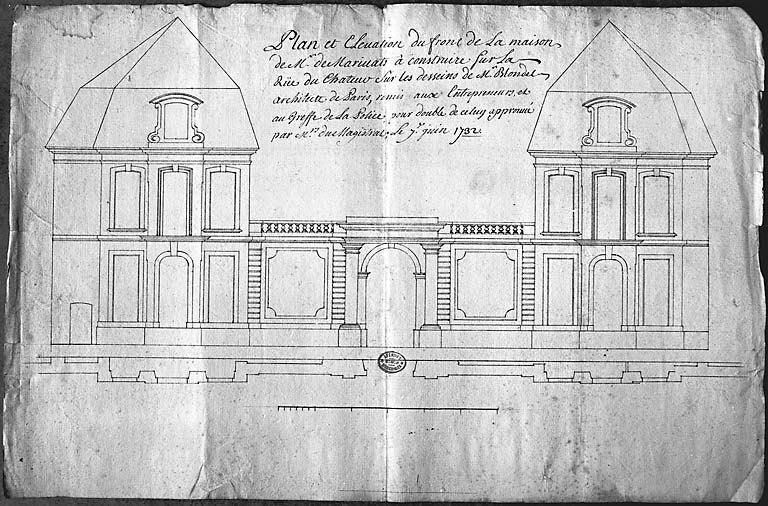 Plan et Elevation du front de La maison
de Mr. de Marivats à construire sur La
Rüe du Chateur sur les desseins de Mr. Blondel
architecte de Paris, remis aux Entrepreneurs, et
au Greffe de La Police pour double de celuy approuué
par Mrs du Magistrat, Le 7e juin 1732.